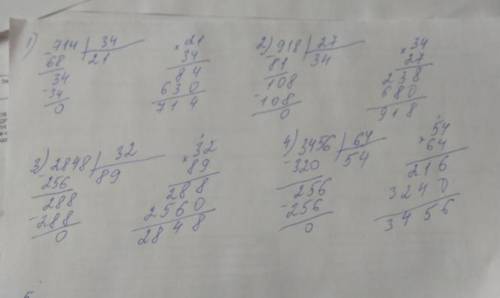 1) 714 | 34
- 68 | 21
34
- 34
0
× 21
34
84
630
714
2) 918 | 27
- 81 | 34
108
- 108
0
× 34
27
238
680
918
3) 2848 | 32
- 256 | 89
288
- 288
0
× 32
89
288
2560
2848
4) 3456 | 64
- 320 | 54
256
- 256
0
× 54
64
216
3240
3456